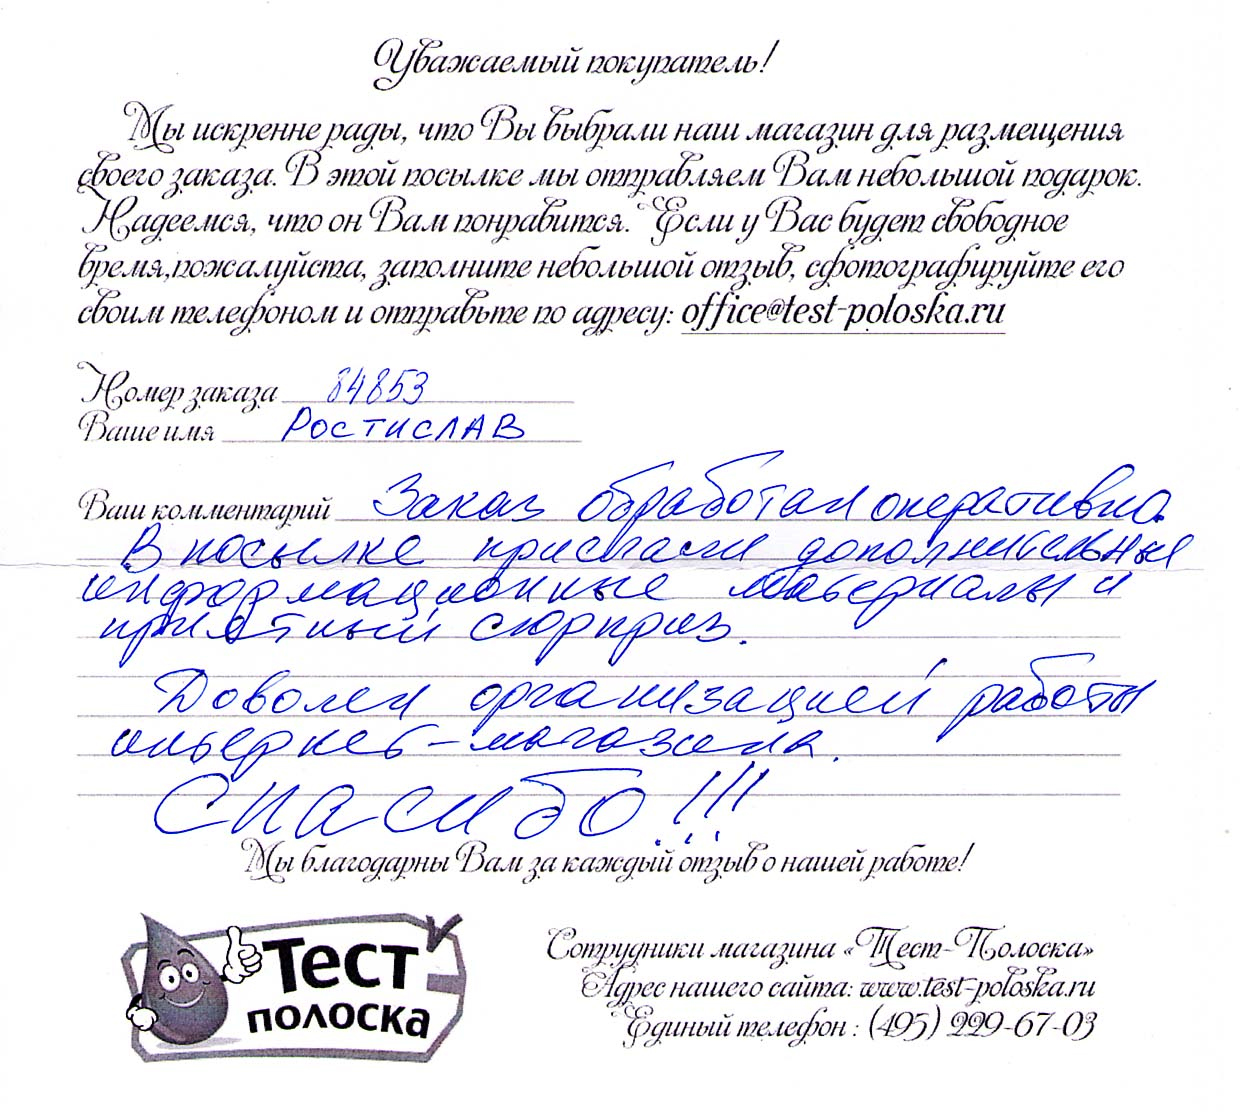 Уважаемый покупатель!
Мы искренне рады, что Вы выбрали наш магазин для размещения
своего заказа. В этой посылке мы отправляем Вам небольшой подарок.
Надеемся, что он Вам понравится. Если у Вас будет свободное
время,пожалуйста, заполните небольшой отзыв, сфотографируйте его
своим телефоном и отправьте по адресу: office@test-poloska.ru
Номер заказа 84853
Ваше имя Ростислав
Ваш комментарий Заказ обработан оперативно.
В посылке прислали дополнительные
информационные материалы и
приятный сюрприз.
Доволен организацией работы
интернет-магазина.
Спасибо!!!
Мы благодарны Вам за каждый отзыв о нашей работе!
Тест
полоска
Сотрудники магазина «Тест-Полоска»
Адрес нашего сайта: www.test-poloska.ru
Единый телефон : (495) 229-67-03